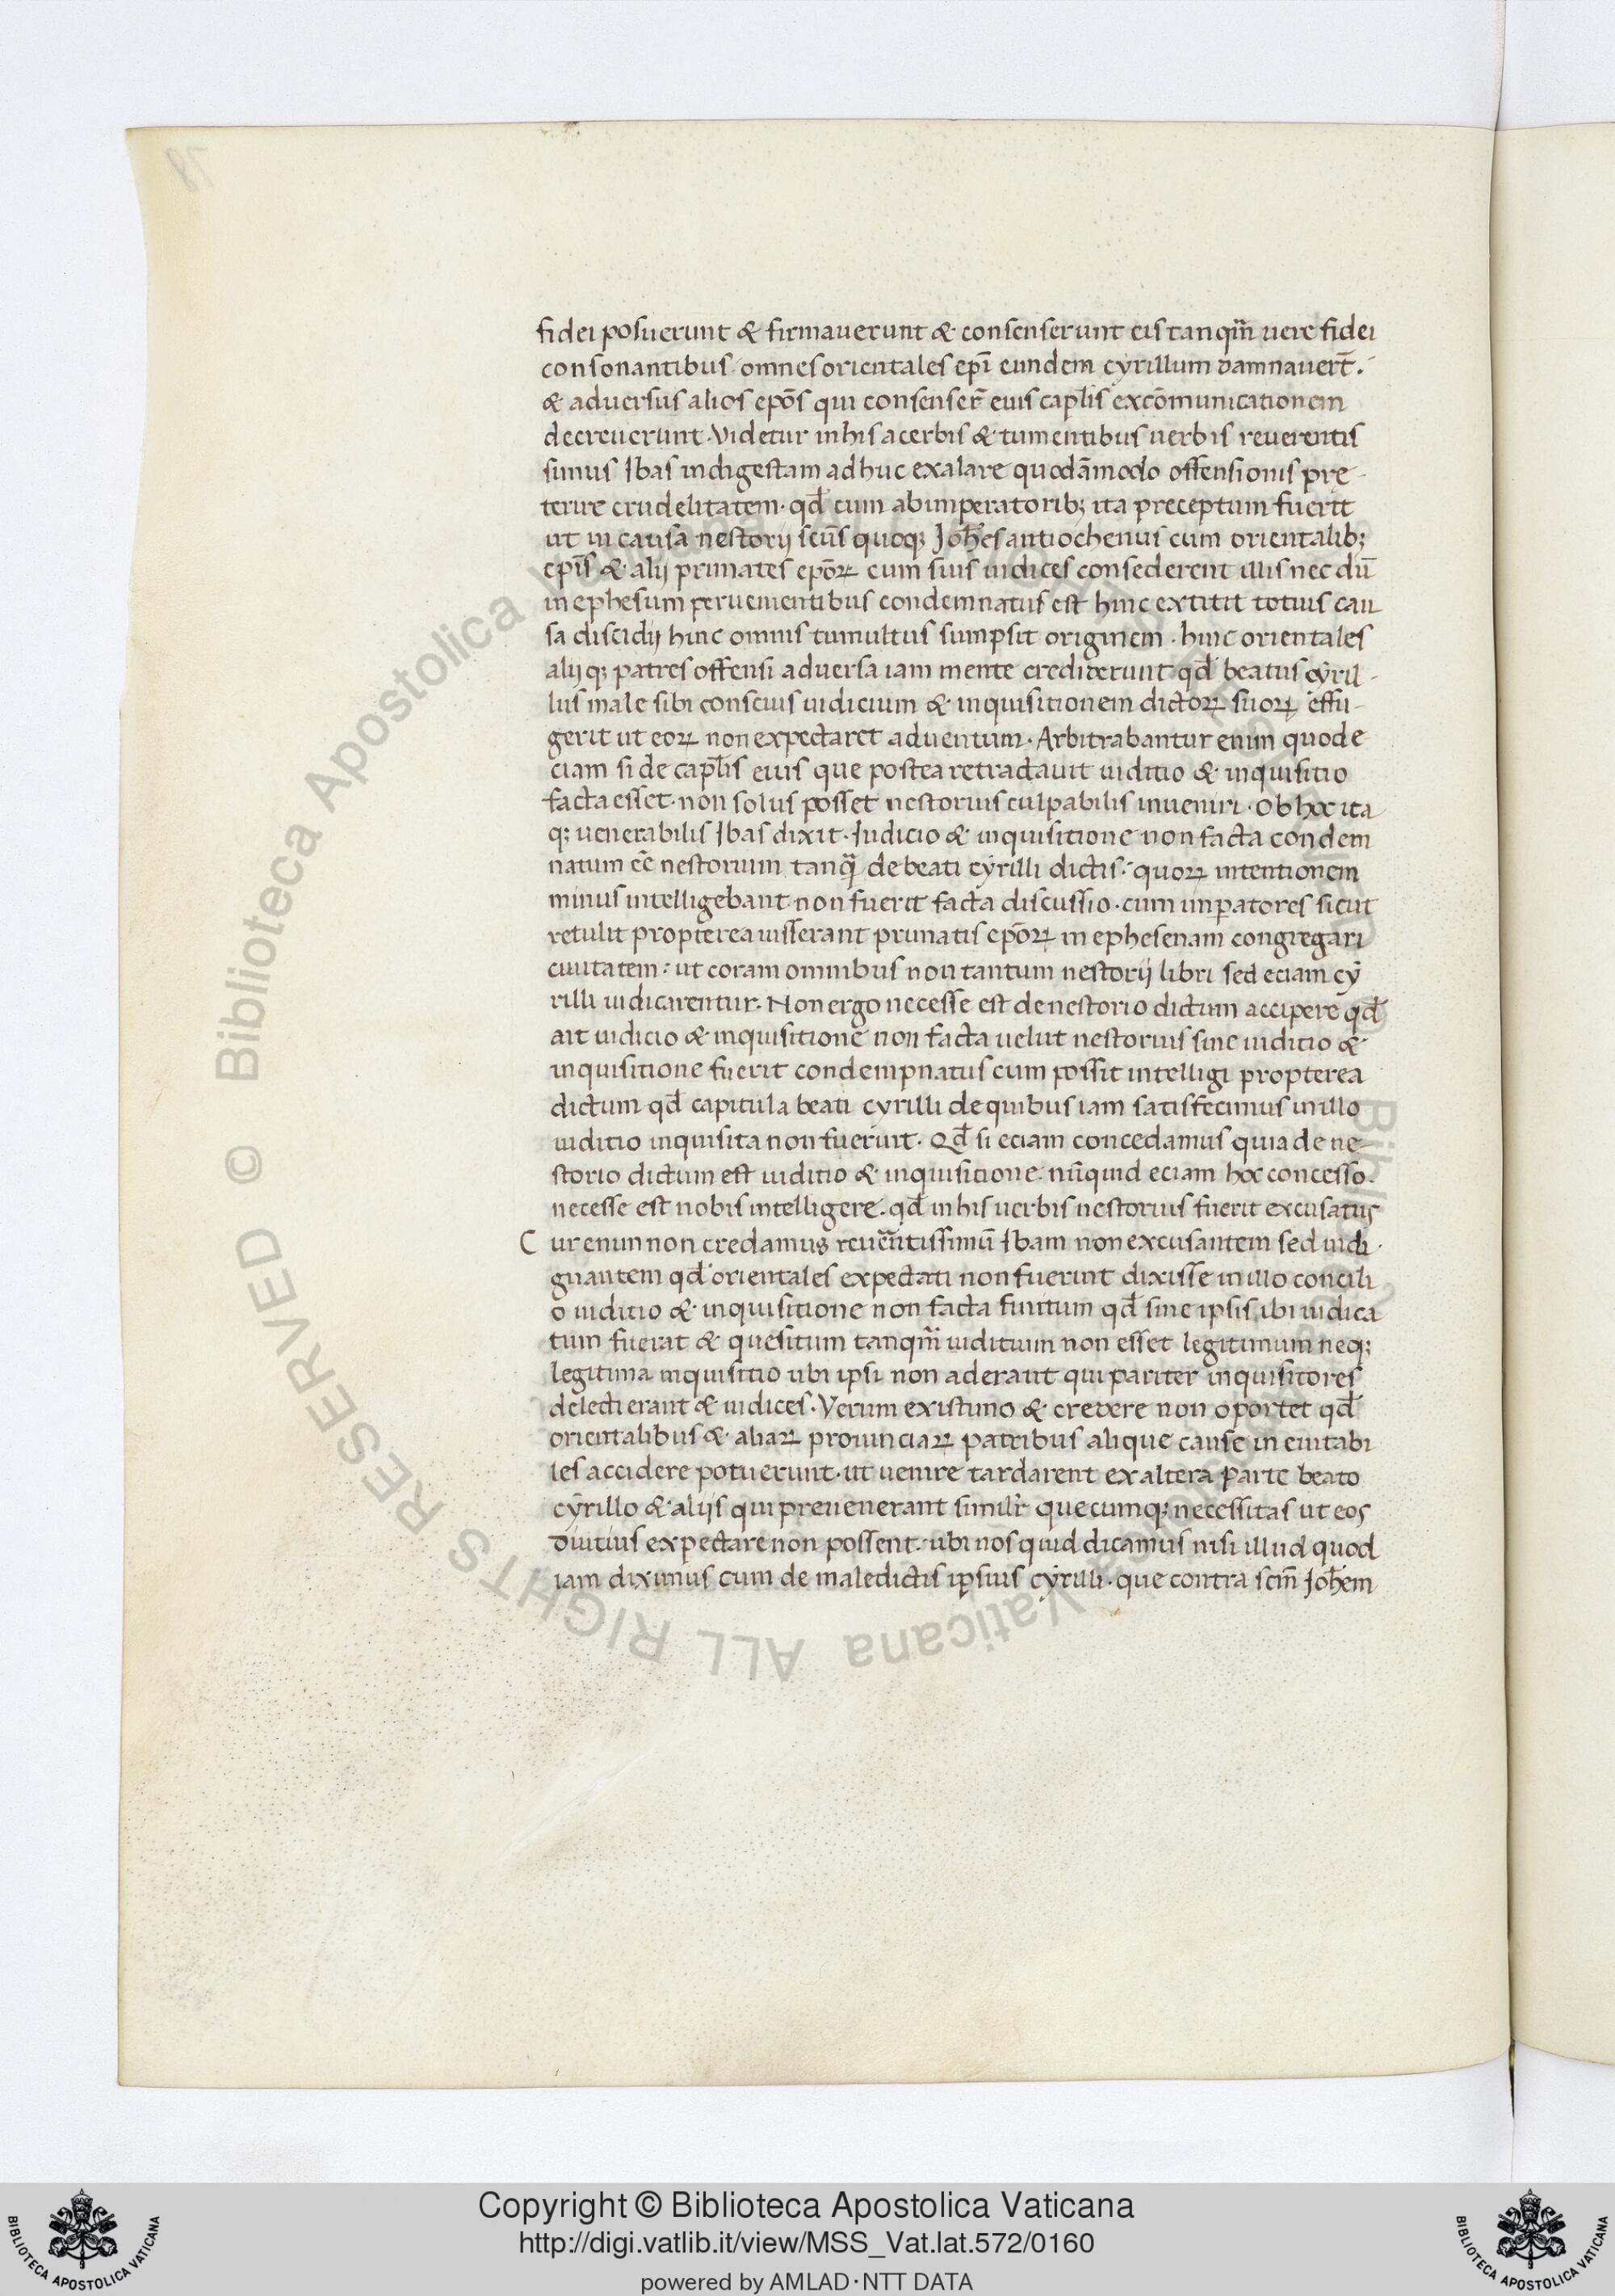 fidei posuerunt & firmauerunt & consenserunt eis tanqm̄ uere fidei
consonantibus omnes orientales epı̄ eundem cyrillum damnauert̄.
& aduersus alios epōs qui consenser̄ euis capl̄is excōmunicationem
decreuerunt. Videtur in his acerbis & tumentibus uerbis reuerentis
simus Ibas indigestam adhuc exalare quodāmodo offensionis pre-
terire crudelitatem. qd̄ cum ab imperatorib; ita preceptum fuerit
ut in causa nestorij scūs quoq; Joh̄es antiochenus cum orientalib;
epı̄s & alij primates epōꝝ cum suis iudices consederent illis nec dū
in ephesum peruenientibus condemnatus est hinc extitit totius cau
sa discidij hinc omnis tumultus sumpsit originem. hinc orientales
alijq; patres offensi aduersa iam mente crediderunt qd̄ beatus cyril-
lus male sibi conscius iudicium & inquisitionem dictoꝝ suoꝝ effu-
gerit ut eoꝝ non expectaret aduentum. Arbitrabantur enim quod e
ciam si de capl̄is eius que postea retractauit iuditio & inquisitio
facta esset. non solus posset nestorius culpabilis inueniri. Ob hoc ita
q; uenerabilis Ibas dixit. Iudicio & inquisitione non facta condem
natum eē nestorium tanq̄ de beati cyrilli dictis: quoꝝ intentionem
minus intelligebant non fuerit facta discussio. cum imꝑatores sicut
retulit propterea iusserant primatis epōꝝ in ephesenam congregari
ciuitatem: ut coram omnibus non tantum nestorij libri sed eciam cy
rilli iudicarentur. Non ergo necesse est de nestorio dictum accipere qd̄
ait iudicio & inquisitione non facta uelut nestorius sine iuditio &
inquisitione fuerit condempnatus cum possit intelligi propterea
dictum qd̄ capitula beati cyrilli de quibus iam satisfecimus in illo
iuditio inquisita non fuerint. Qd̄ si eciam concedamus quia de ne
storio dictum est iuditio & inquisitione. nūquid eciam hoc concesso.
necesse est nobis intelligere. qd̄ in his uerbis nestorius fuerit excusatus
Cur enim non credamus reuer̄entissimū Ibam non excusantem sed indi-
gnantem qd̄ orientales expectati non fuerint dixisse in illo concili
o iuditio & inquisitione non facta finitum qd̄ sine ipsis ibi iudica
tum fuerat & quesitum tanqm̄ iuditium non esset legitimum neq;
legitima inquisitio ubi ipsi non aderant qui pariter inquisitores
delecti erant & iudices. Verum existimo & credere non oportet qd̄
orientalibus & aliaꝝ prouinciaꝝ patribus alique cause in euitabi
les accidere potuerunt. ut uenire tardarent ex altera parte beato
cyrillo & alijs qui preuenerant simil̄r quecumq; necessitas ut eos
diutius expectare non possent. ubi nos quid dicamus nisi illud quod
iam diximus cum de maledictis ipsius cyrilli. que contra scm̄ Joh̄em
© Biblioteca Apostolica Vaticana ALL RIGHTS RESERVED
Copyright © Biblioteca Apostolica Vaticana
http://digi.vatlib.it/view/MSS_Vat.lat.572/0160
powered by AMLAD·NTT DATA
BIBLIOTECA APOSTOLICA VATICANA
BIBLIOTECA APOSTOLICA VATICANA